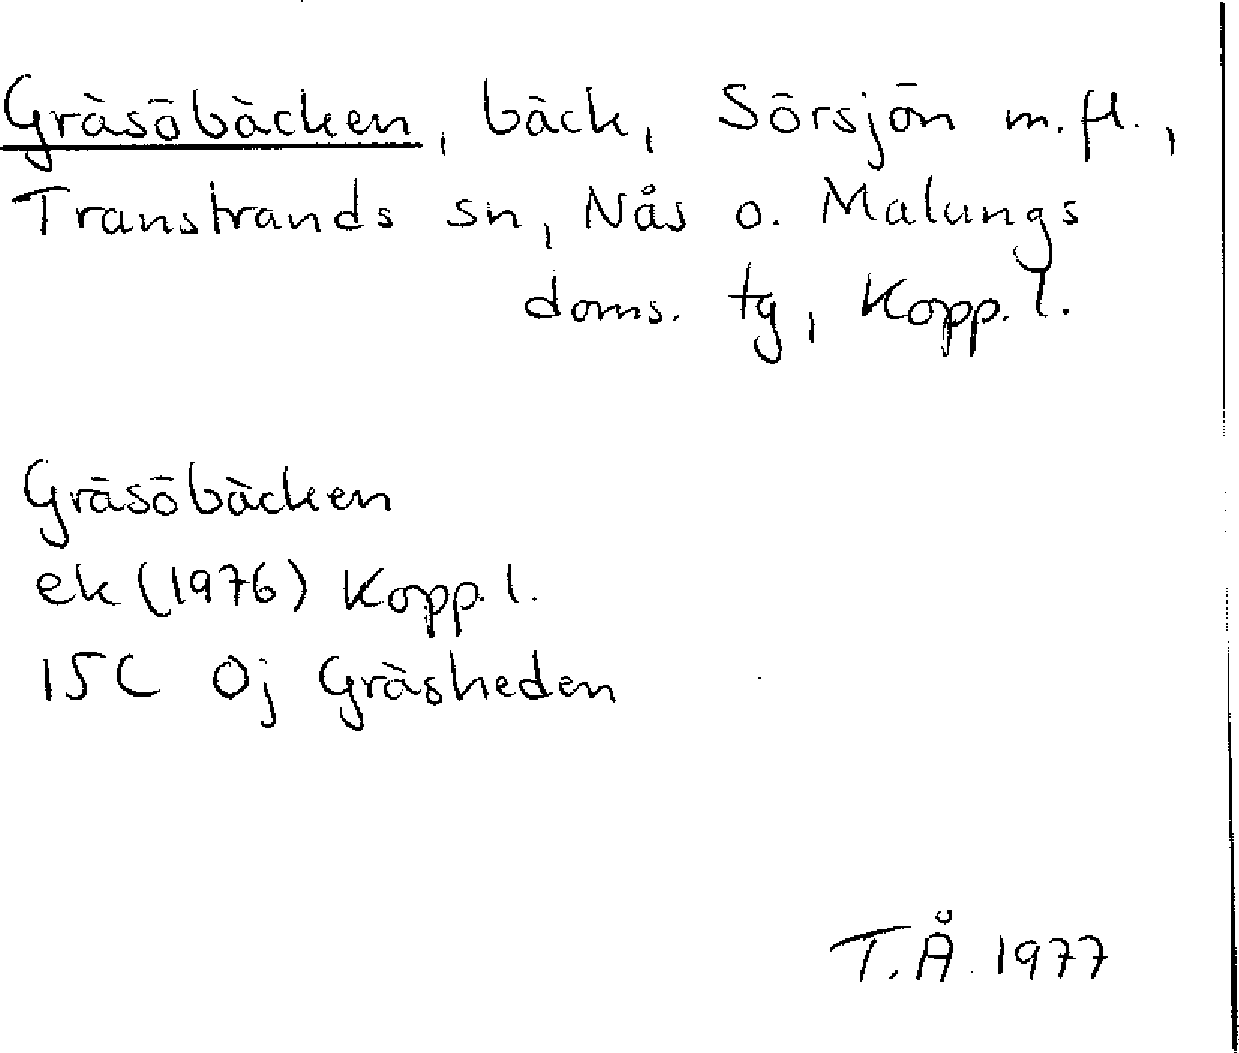 Gräsöbäcken, bäck, Sörsjön m.fl.,
Transtrands sn, Nås o. Malungs
doms. tg, Kopp. l.
Gräsöbäcken
ek (1976) Kopp. l.
15C 0j Gräsheden
T.Å. 1977